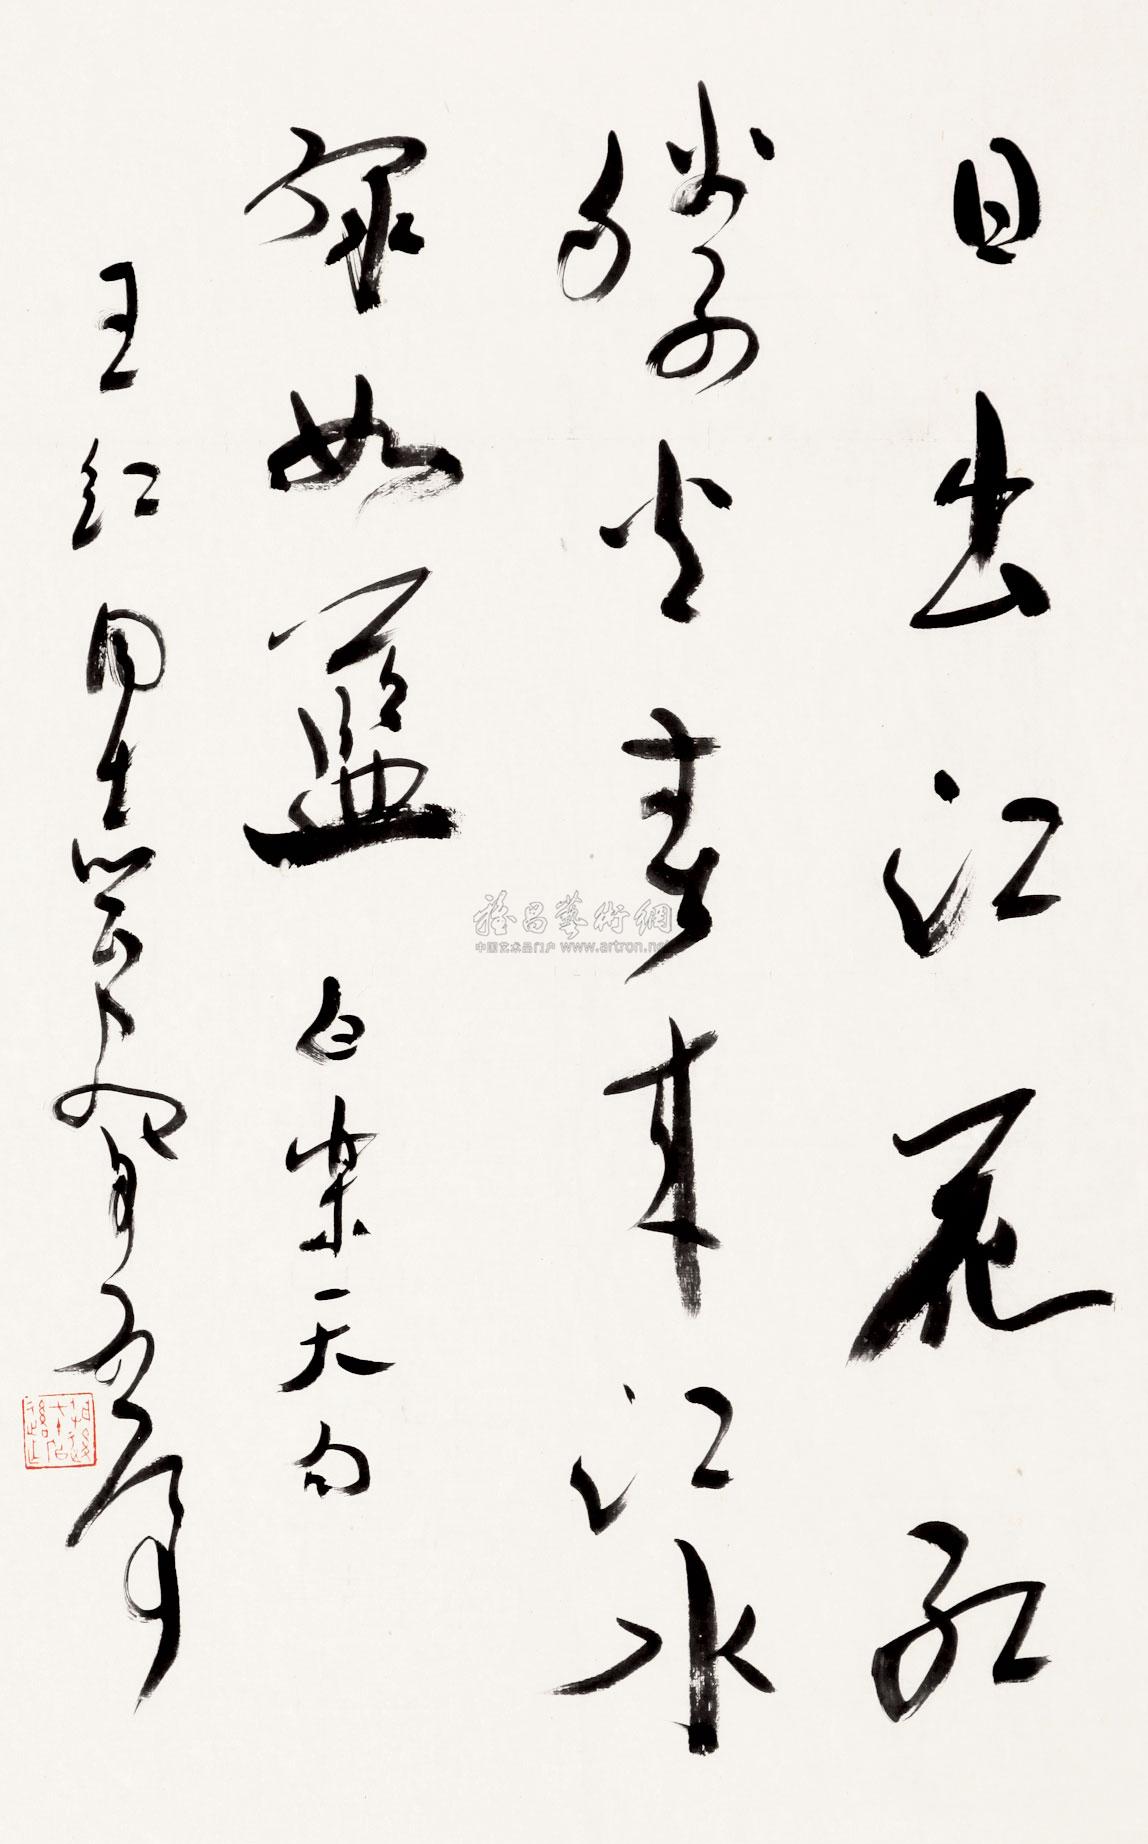 日出江花红
胜火春来江水
绿如蓝 白乐天句
王红同志
雅昌藝術網
中国艺术品门户 www.artron.net